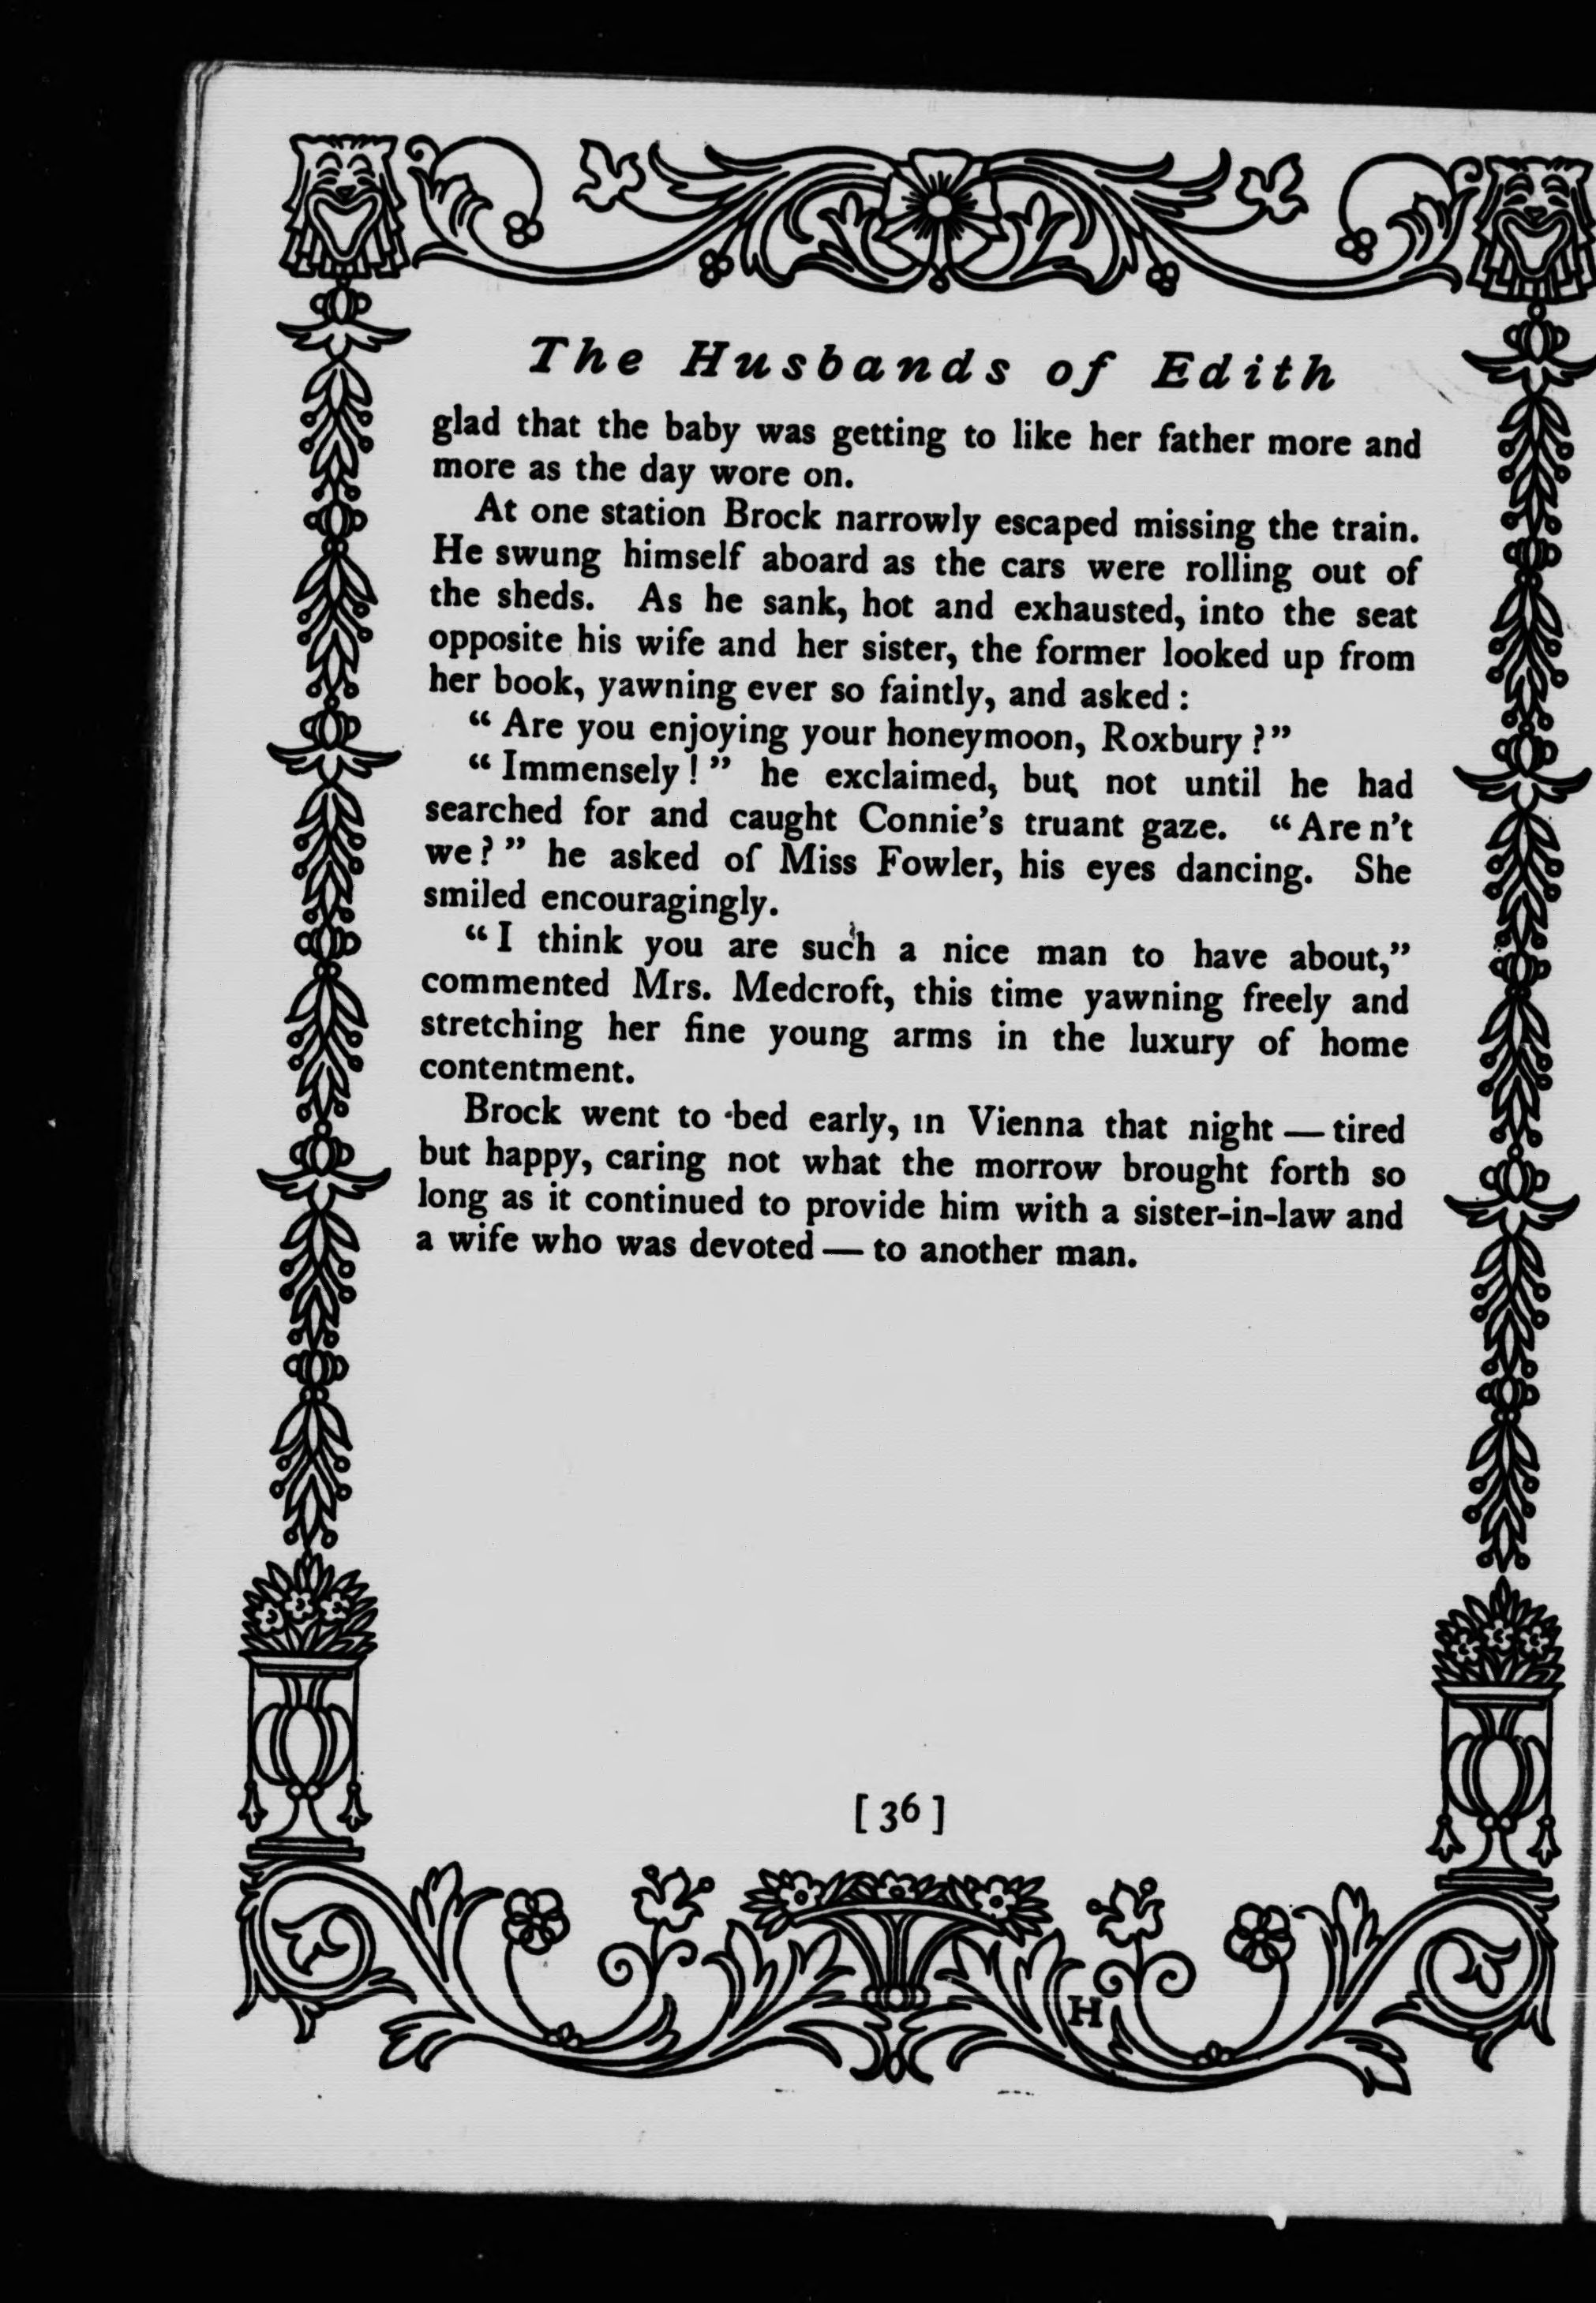 The Husbands of Edith
glad that the baby was getting to like her father more and
more as the day wore on.
At one station Brock narrowly escaped missing the train.
He swung himself aboard as the cars were rolling out of
the sheds. As he sank, hot and exhausted, into the seat
opposite his wife and her sister, the former looked up from
her book, yawning ever so faintly, and asked:
“Are you enjoying your honeymoon, Roxbury?”
“Immensely!” he exclaimed, but not until he had
searched for and caught Connie’s truant gaze. “Are n’t
we?” he asked of Miss Fowler, his eyes dancing. She
smiled encouragingly.
“I think you are such a nice man to have about,”
commented Mrs. Medcroft, this time yawning freely and
stretching her fine young arms in the luxury of home
contentment.
Brock went to bed early, in Vienna that night — tired
but happy, caring not what the morrow brought forth so
long as it continued to provide him with a sister-in-law and
a wife who was devoted — to another man.
[36]
H